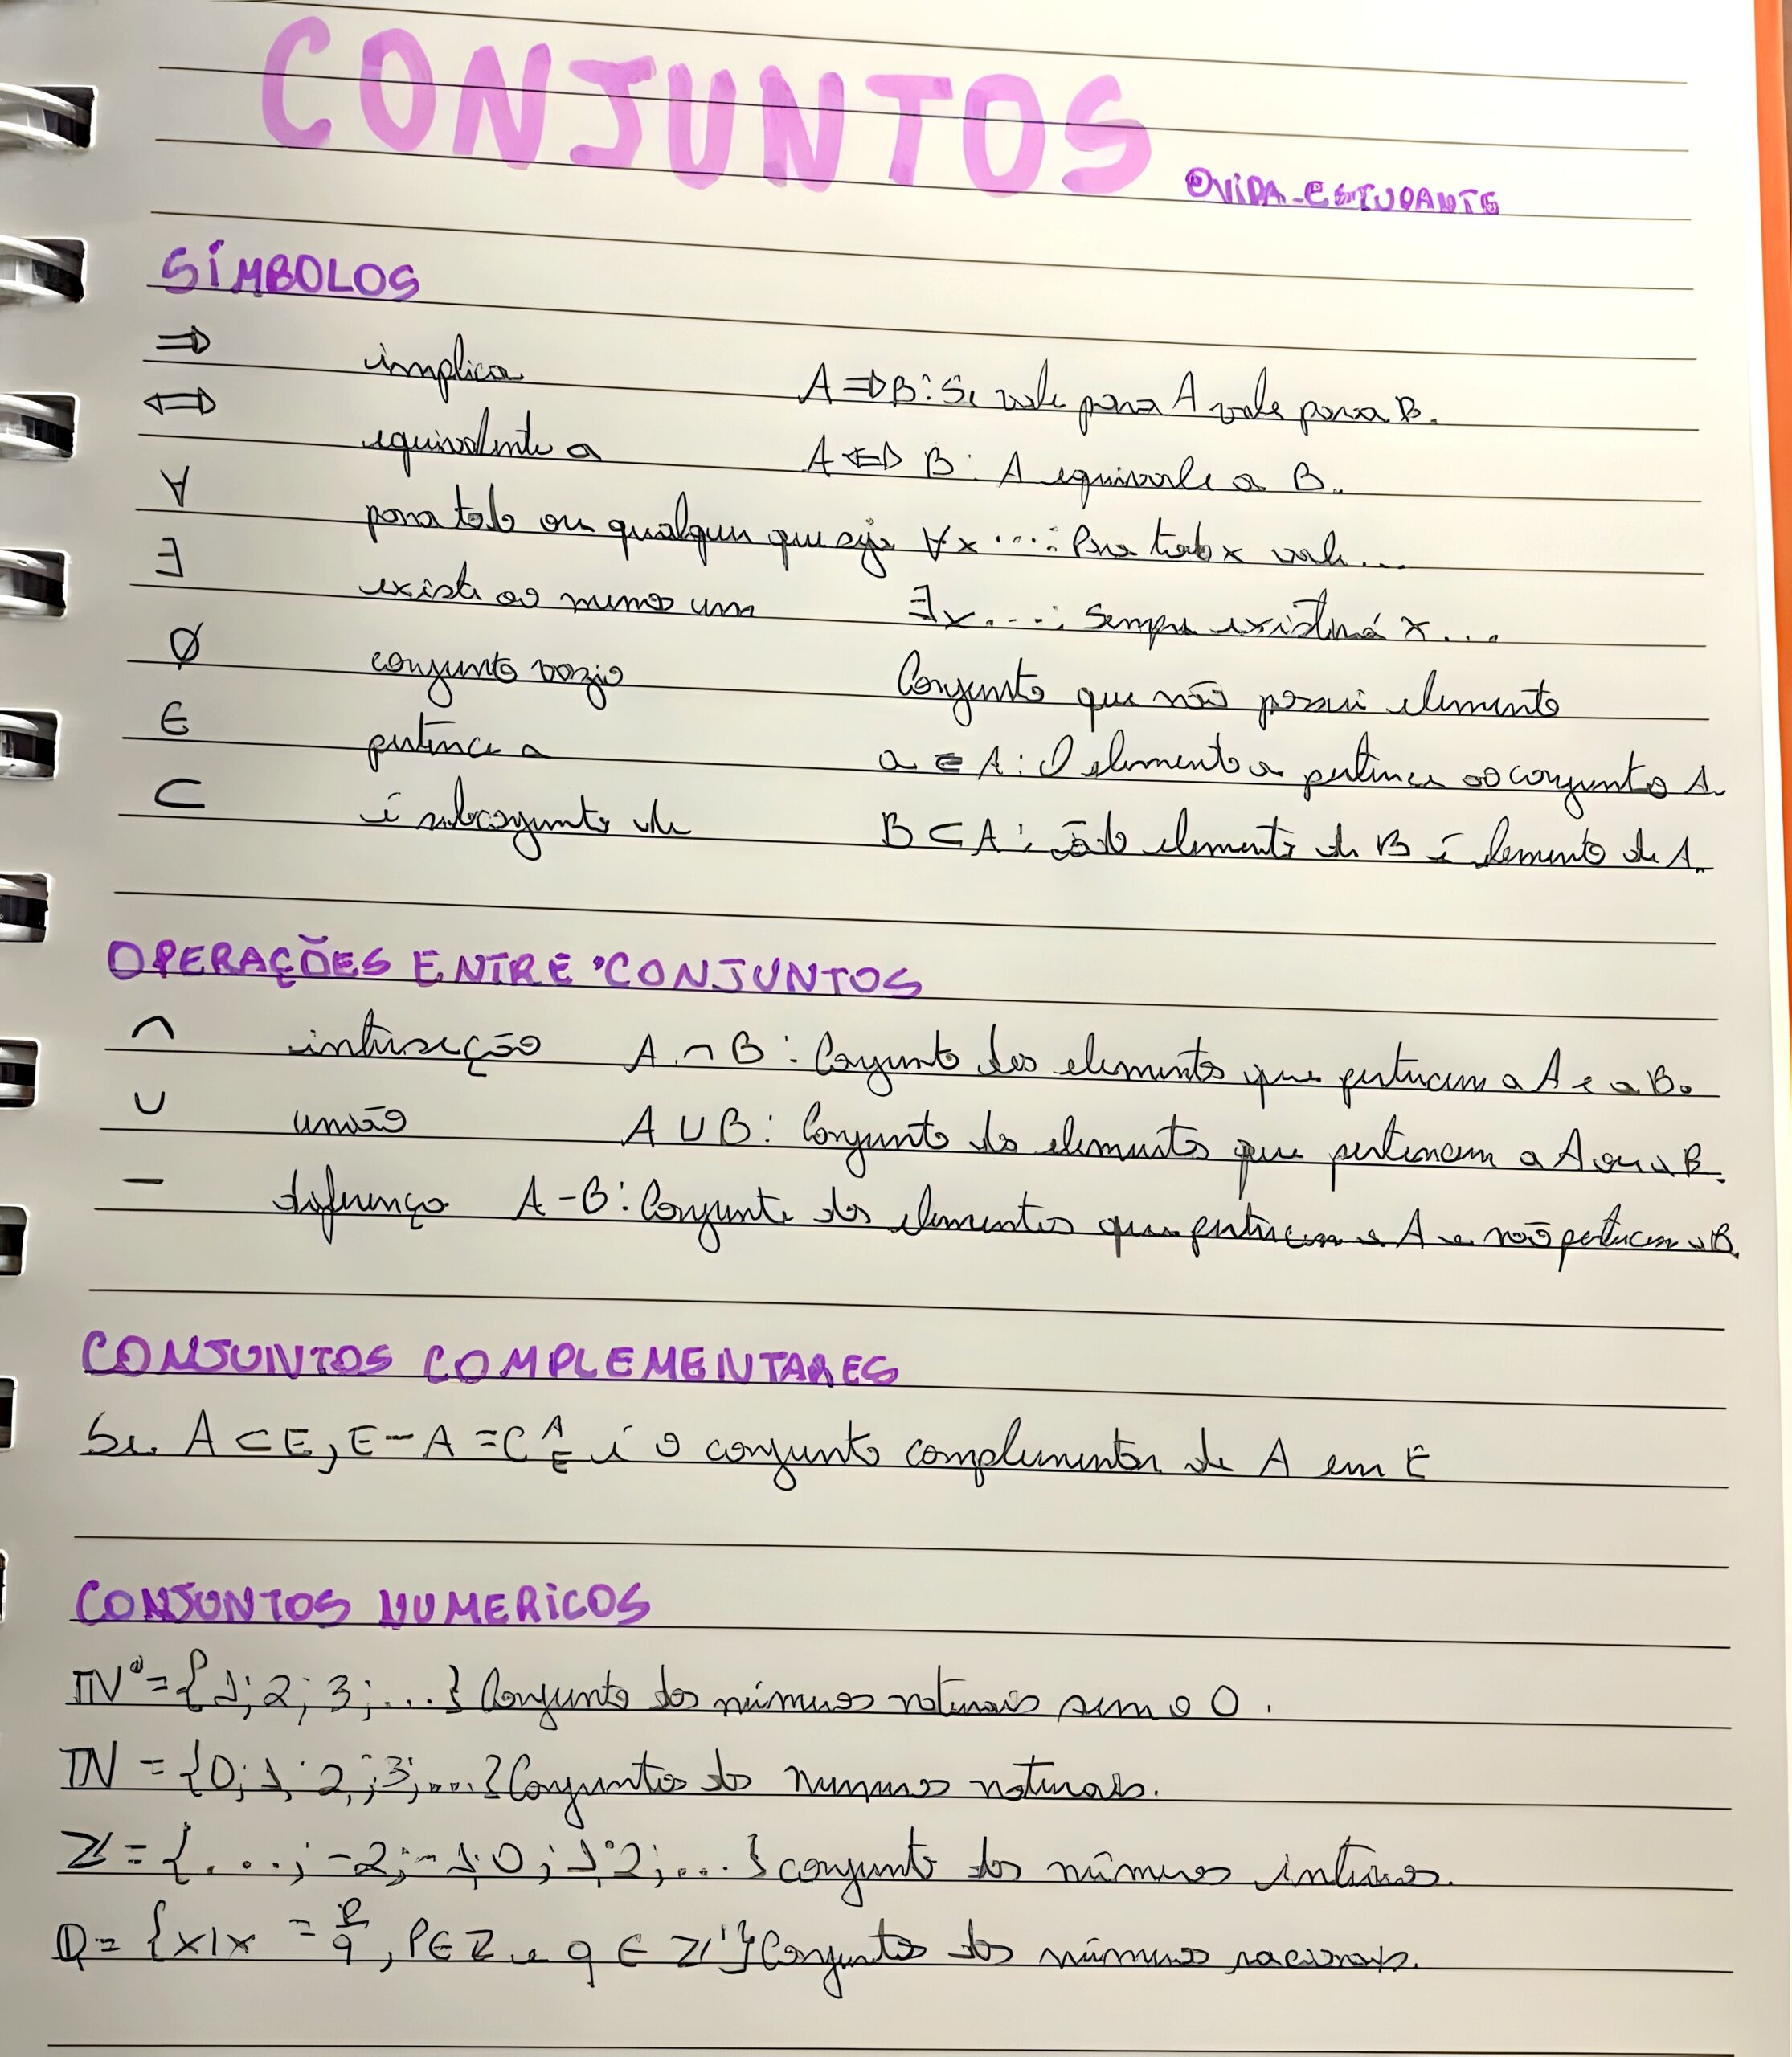 CONJUNTOS
@VIDA_ESTUDANTE
SÍMBOLOS
⇒ implica A⇒B: Se vale para A vale para B.
⇔ equivalente a A⇔B: A equivale a B.
∀ para todo ou qualquer que seja ∀x ...: Para todo x vale...
∃ existe ao menos um ∃x...: Sempre existirá x...
∅ conjunto vazio Conjunto que não possui elemento
∈ pertence a a ∈ A: O elemento a pertence ao conjunto A.
⊂ é subconjunto de B⊂A: todo elemento de B é elemento de A.
OPERAÇÕES ENTRE CONJUNTOS
∩ interseção A∩B: Conjunto dos elementos que pertencem a A e a B.
∪ união A∪B: Conjunto dos elementos que pertencem a A ou a B.
− diferença A-B: Conjunto dos elementos que pertencem a A e não pertencem a B.
CONJUNTOS COMPLEMENTARES
Se A⊂E, E-A = C^A_E é o conjunto complementar de A em E
CONJUNTOS NUMERICOS
ℕ* = {1; 2; 3; ...} Conjunto dos números naturais sem o 0.
ℕ = {0; 1; 2; 3; ...} Conjuntos dos numeros naturais.
ℤ = {...; -2; -1; 0; 1; 2; ...} conjunto dos números inteiros.
ℚ = {x|x = p/q, P∈ℤ e q ∈ ℤ*} Conjuntos dos números racionais.